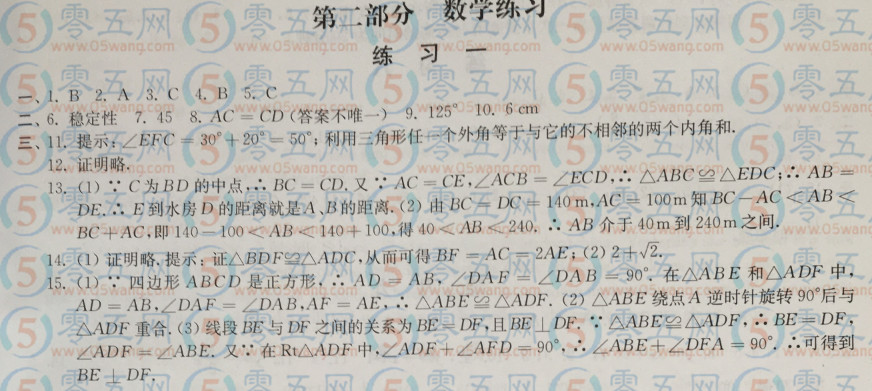 第二部分 数学练习
练 习 一
一、1. B 2. A 3. C 4. B 5. C
二、6. 稳定性 7. 45 8. AC=CD(答案不唯一) 9. 125° 10. 6 cm
三、11. 提示:∠EFC=30°+20°=50°;利用三角形任一个外角等于与它的不相邻的两个内角和.
12. 证明略.
13. (1) ∵ C为BD的中点,∴ BC=CD. 又∵ AC=CE,∠ACB=∠ECD,∴ △ABC≌△EDC;∴ AB=
DE.∴ E到水房D的距离就是A、B的距离. (2) 由BC=DC=140 m,AC=100 m知BC-AC<AB<
BC+AC,即140-100<AB<140+100,得40<AB<240. ∴ AB介于40 m到240 m之间.
14. (1) 证明略. 提示:证△BDF≌△ADC,从而可得BF=AC=2AE; (2) 2+√2.
15. (1) ∵ 四边形ABCD是正方形,∴ AD=AB,∠DAF=∠DAB=90°. 在△ABE和△ADF中,
AD=AB,∠DAF=∠DAB,AF=AE,∴ △ABE≌△ADF. (2) △ABE绕点A逆时针旋转90°后与
△ADF重合. (3) 线段BE与DF之间的关系为BE=DF,且BE⊥DF. ∵ △ABE≌△ADF,∴ BE=DF,
∠ADF=∠ABE. 又∵ 在Rt△ADF中,∠ADF+∠AFD=90°,∴ ∠ABE+∠DFA=90°. ∴可得到
BE⊥DF.